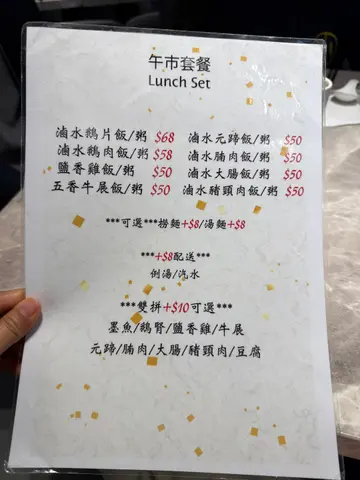 午市套餐
Lunch Set
滷水鵝片飯/粥 $68 滷水元蹄飯/粥 $50
滷水鵝肉飯/粥 $58 滷水腩肉飯/粥 $50
鹽香雞飯/粥 $50 滷水大腸飯/粥 $50
五香牛展飯/粥 $50 滷水豬頸肉飯/粥 $50
***可選***撈麵+$8/湯麵+$8
***+$8配送***
例湯/汽水
***雙拼+$10可選***
墨魚/鵝腎/鹽香雞/牛展
元蹄/腩肉/大腸/豬頸肉/豆腐